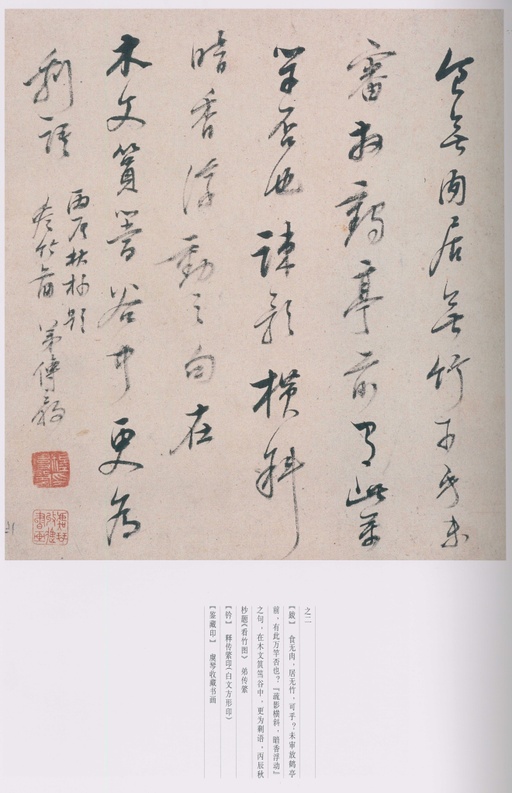 食無肉居無竹可乎未
審放鶴亭前有此萬
竿否也疎影橫斜
暗香浮動之句在
木文篔簹谷中更為
剩語
丙辰秋杪題
看竹圖 弟傳綮
之二
【款】 食无肉,居无竹,可乎?未审放鹤亭
前,有此万竿否也?『疏影横斜,暗香浮动』
之句,在木文筼筜谷中,更为剩语。丙辰秋
杪题《看竹图》 弟传綮
【钤】 释传綮印(白文方形印)
【鉴藏印】 虞琴收藏书画